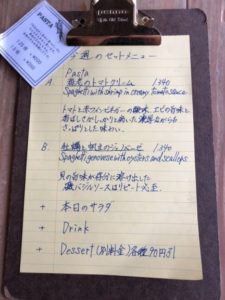 PASTA
今週のセットメニュー
Pasta
A. 海老のトマトクリーム 1390
Spaghetti with shrimp in creamy tomato sauce
トマトと赤ワインビネガーの酸味、エビの旨味と
香ばしさがしっかりと効いた濃厚ながらも
さっぱりとした味わい。
B. 牡蠣と帆立のジェノベーゼ 1390
Spaghetti genovese with oysters and scallops
貝の旨味が存分に溶け出した
バジルソースはリピート必至。
+ 本日のサラダ
+ Drink
+ Dessert (別料金) 各種90円引